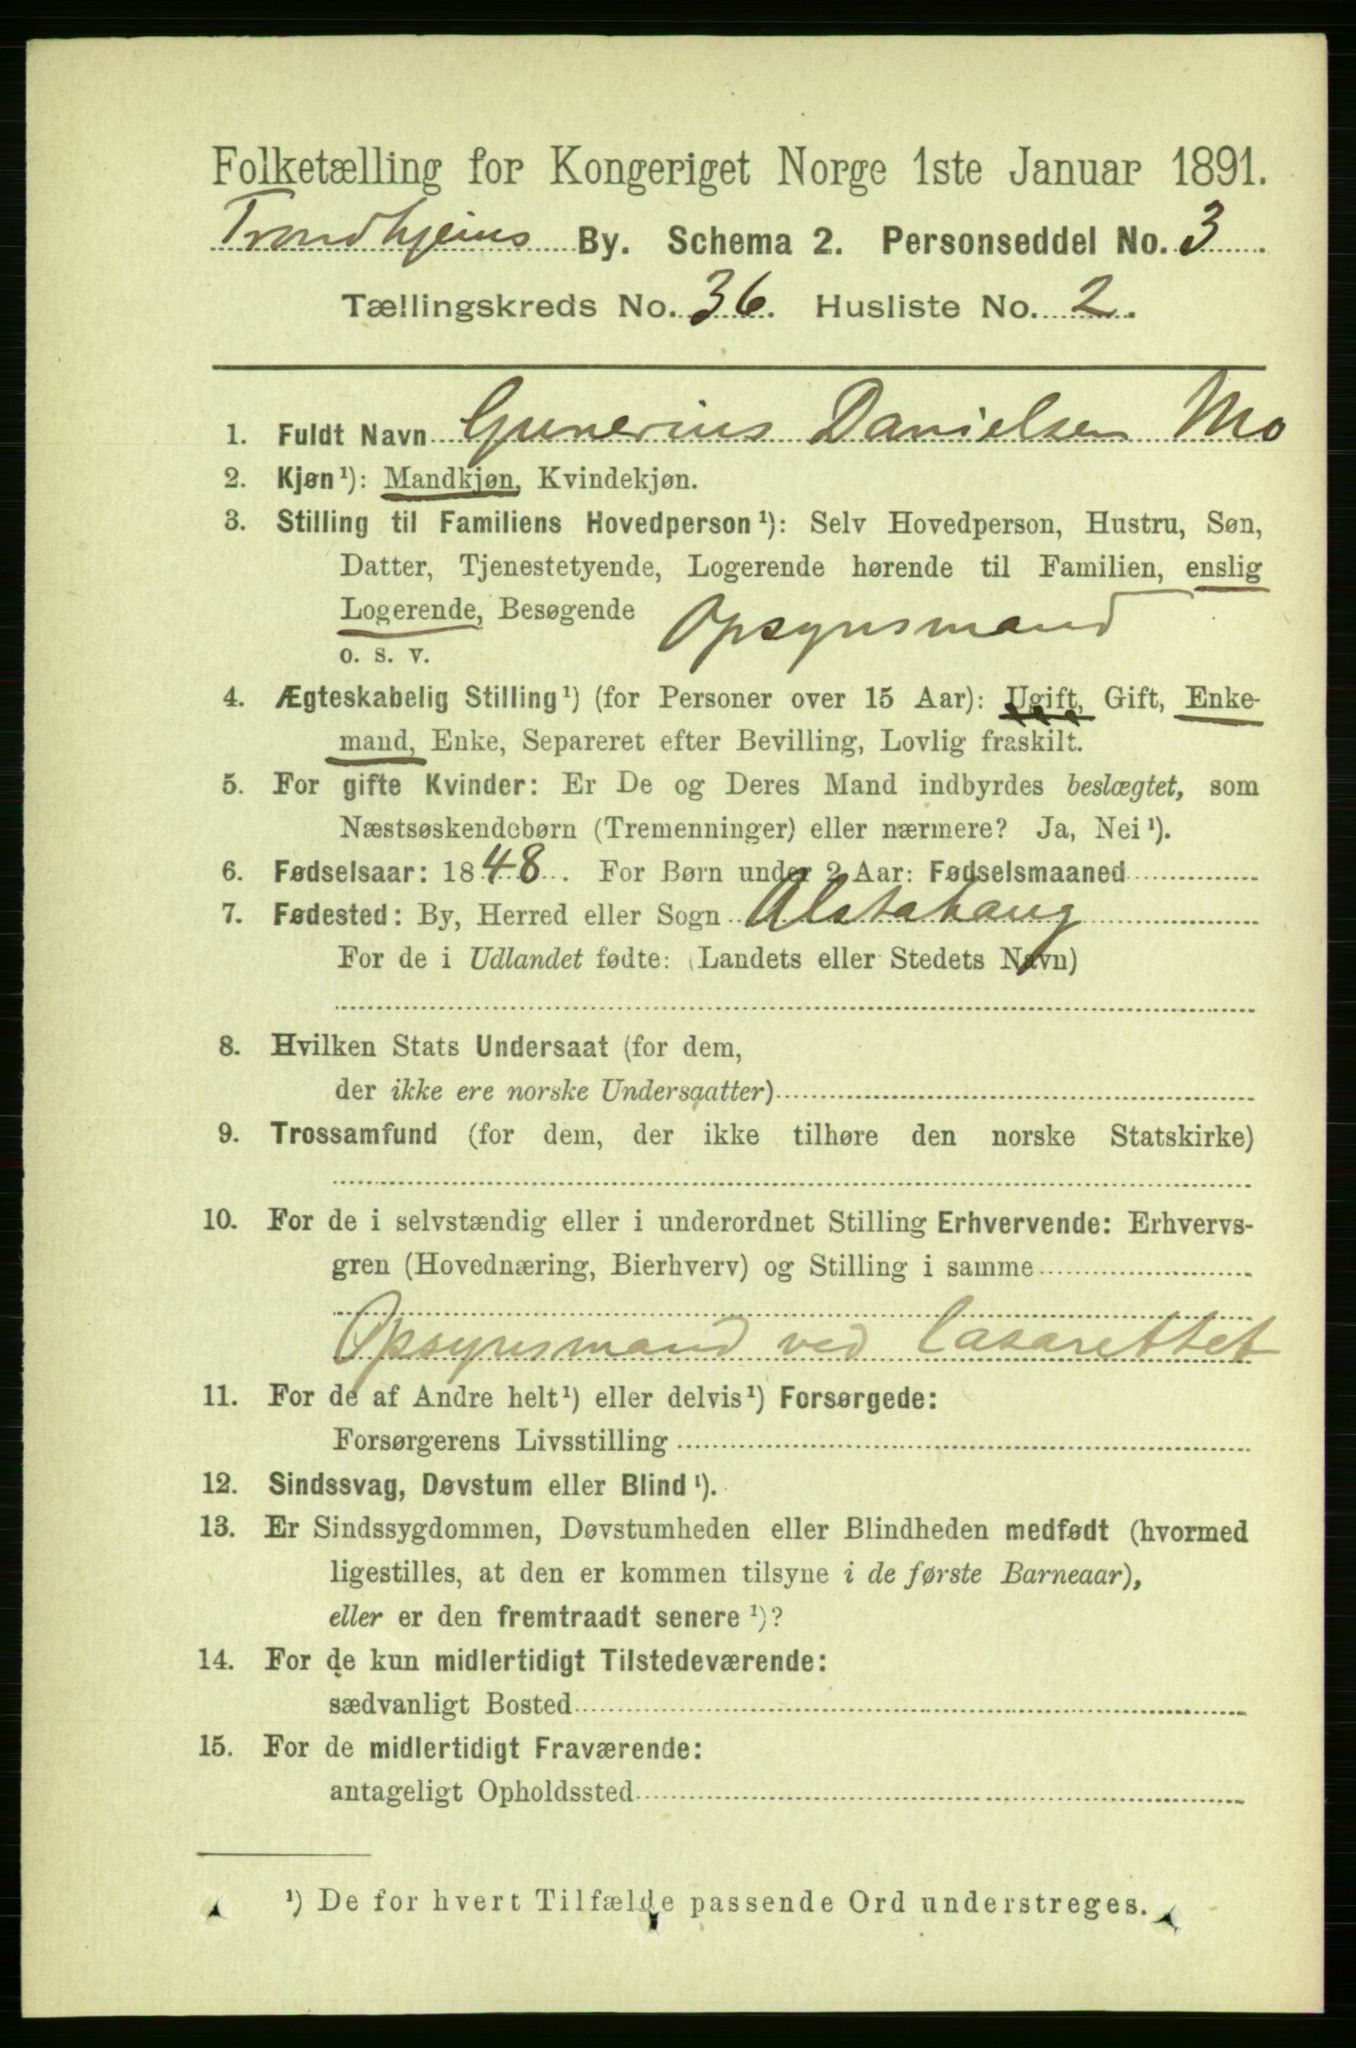 Folketælling for Kongeriget Norge 1ste Januar 1891.
Trondhjems By. Schema 2. Personseddel No. 3.
Tællingskreds No. 36. Husliste No. 2.
1. Fuldt Navn Gunerius Danielsen Mo
2. Kjøn¹): Mandkjøn, Kvindekjøn.
3. Stilling til Familiens Hovedperson¹): Selv Hovedperson, Hustru, Søn,
Datter, Tjenestetyende, Logerende hørende til Familien, enslig
Logerende, Besøgende Opsynsmand
o. s. v.
4. Ægteskabelig Stilling¹) (for Personer over 15 Aar): Ugift, Gift, Enke-
mand, Enke, Separeret efter Bevilling, Lovlig fraskilt.
5. For gifte Kvinder: Er De og Deres Mand indbyrdes beslægtet, som
Næstsøskendebørn (Tremenninger) eller nærmere? Ja, Nei¹).
6. Fødselsaar: 1848. For Børn under 2 Aar: Fødselsmaaned
7. Fødested: By, Herred eller Sogn Alstahaug
For de i Udlandet fødte: (Landets eller Stedets Navn)
8. Hvilken Stats Undersaat (for dem,
der ikke ere norske Undersaatter)
9. Trossamfund (for dem, der ikke tilhøre den norske Statskirke)
10. For de i selvstændig eller i underordnet Stilling Erhvervende: Erhvervs-
gren (Hovednæring, Bierhverv) og Stilling i samme
Opsynsmand ved Lasarettet
11. For de af Andre helt¹) eller delvis¹) Forsørgede:
Forsørgerens Livsstilling
12. Sindssvag, Døvstum eller Blind¹).
13. Er Sindssygdommen, Døvstumheden eller Blindheden medfødt (hvormed
ligestilles, at den er kommen tilsyne i de første Barneaar),
eller er den fremtraadt senere¹)?
14. For de kun midlertidigt Tilstedeværende:
sædvanligt Bosted
15. For de midlertidigt Fraværende:
antageligt Opholdssted
¹) De for hvert Tilfælde passende Ord understreges.